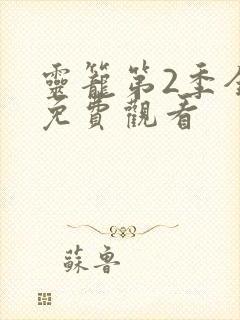 靈籠第2季全
免費觀看
蘇魯